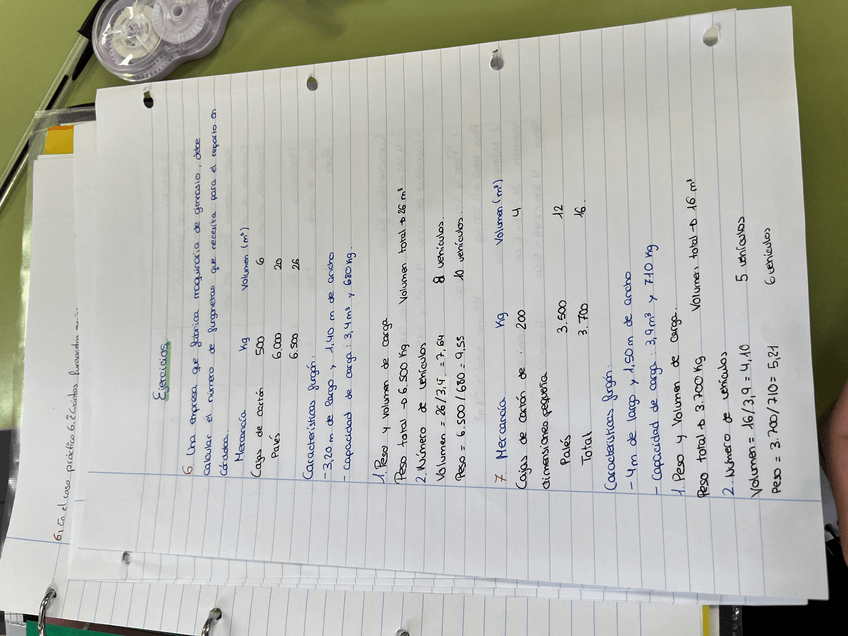 Ejercicios
6 Una empresa que fabrica maquinaria de gimnasio, debe
calcular el número de furgonetas que necesita para el reparto en
Córdoba.
Mercancía Kg Volumen (m³)
Cajas de cartón 500 6
Palés 6.000 20
6.500 26
Características furgón:
- 3,20 m de largo y 1,40 m de ancho
- capacidad de carga: 3,4 m³ y 680 kg.
1. Peso y volumen de carga
Peso total → 6.500 kg Volumen total → 26 m³
2. Número de vehículos
Volumen = 26/3,4 = 7,64 8 vehículos.
Peso = 6.500/680 = 9,55 10 vehículos.
7 Mercancía Kg Volumen (m³)
Cajas de cartón de 200 4
dimensiones pequeña
Palés 3.500 12
Total 3.700 16
Características furgón:
- 4 m de largo y 1,50 m de ancho
- Capacidad de carga: 3,9 m³ y 710 kg
1. Peso y Volumen de carga.
Peso total → 3.700 kg Volumen total → 16 m³
2. Número de vehículos
Volumen = 16/3,9 = 4,10 5 vehículos
Peso = 3.700/710 = 5,21 6 vehículos
6. En el caso práctico 6.2 ¿Cuántas furgonetas